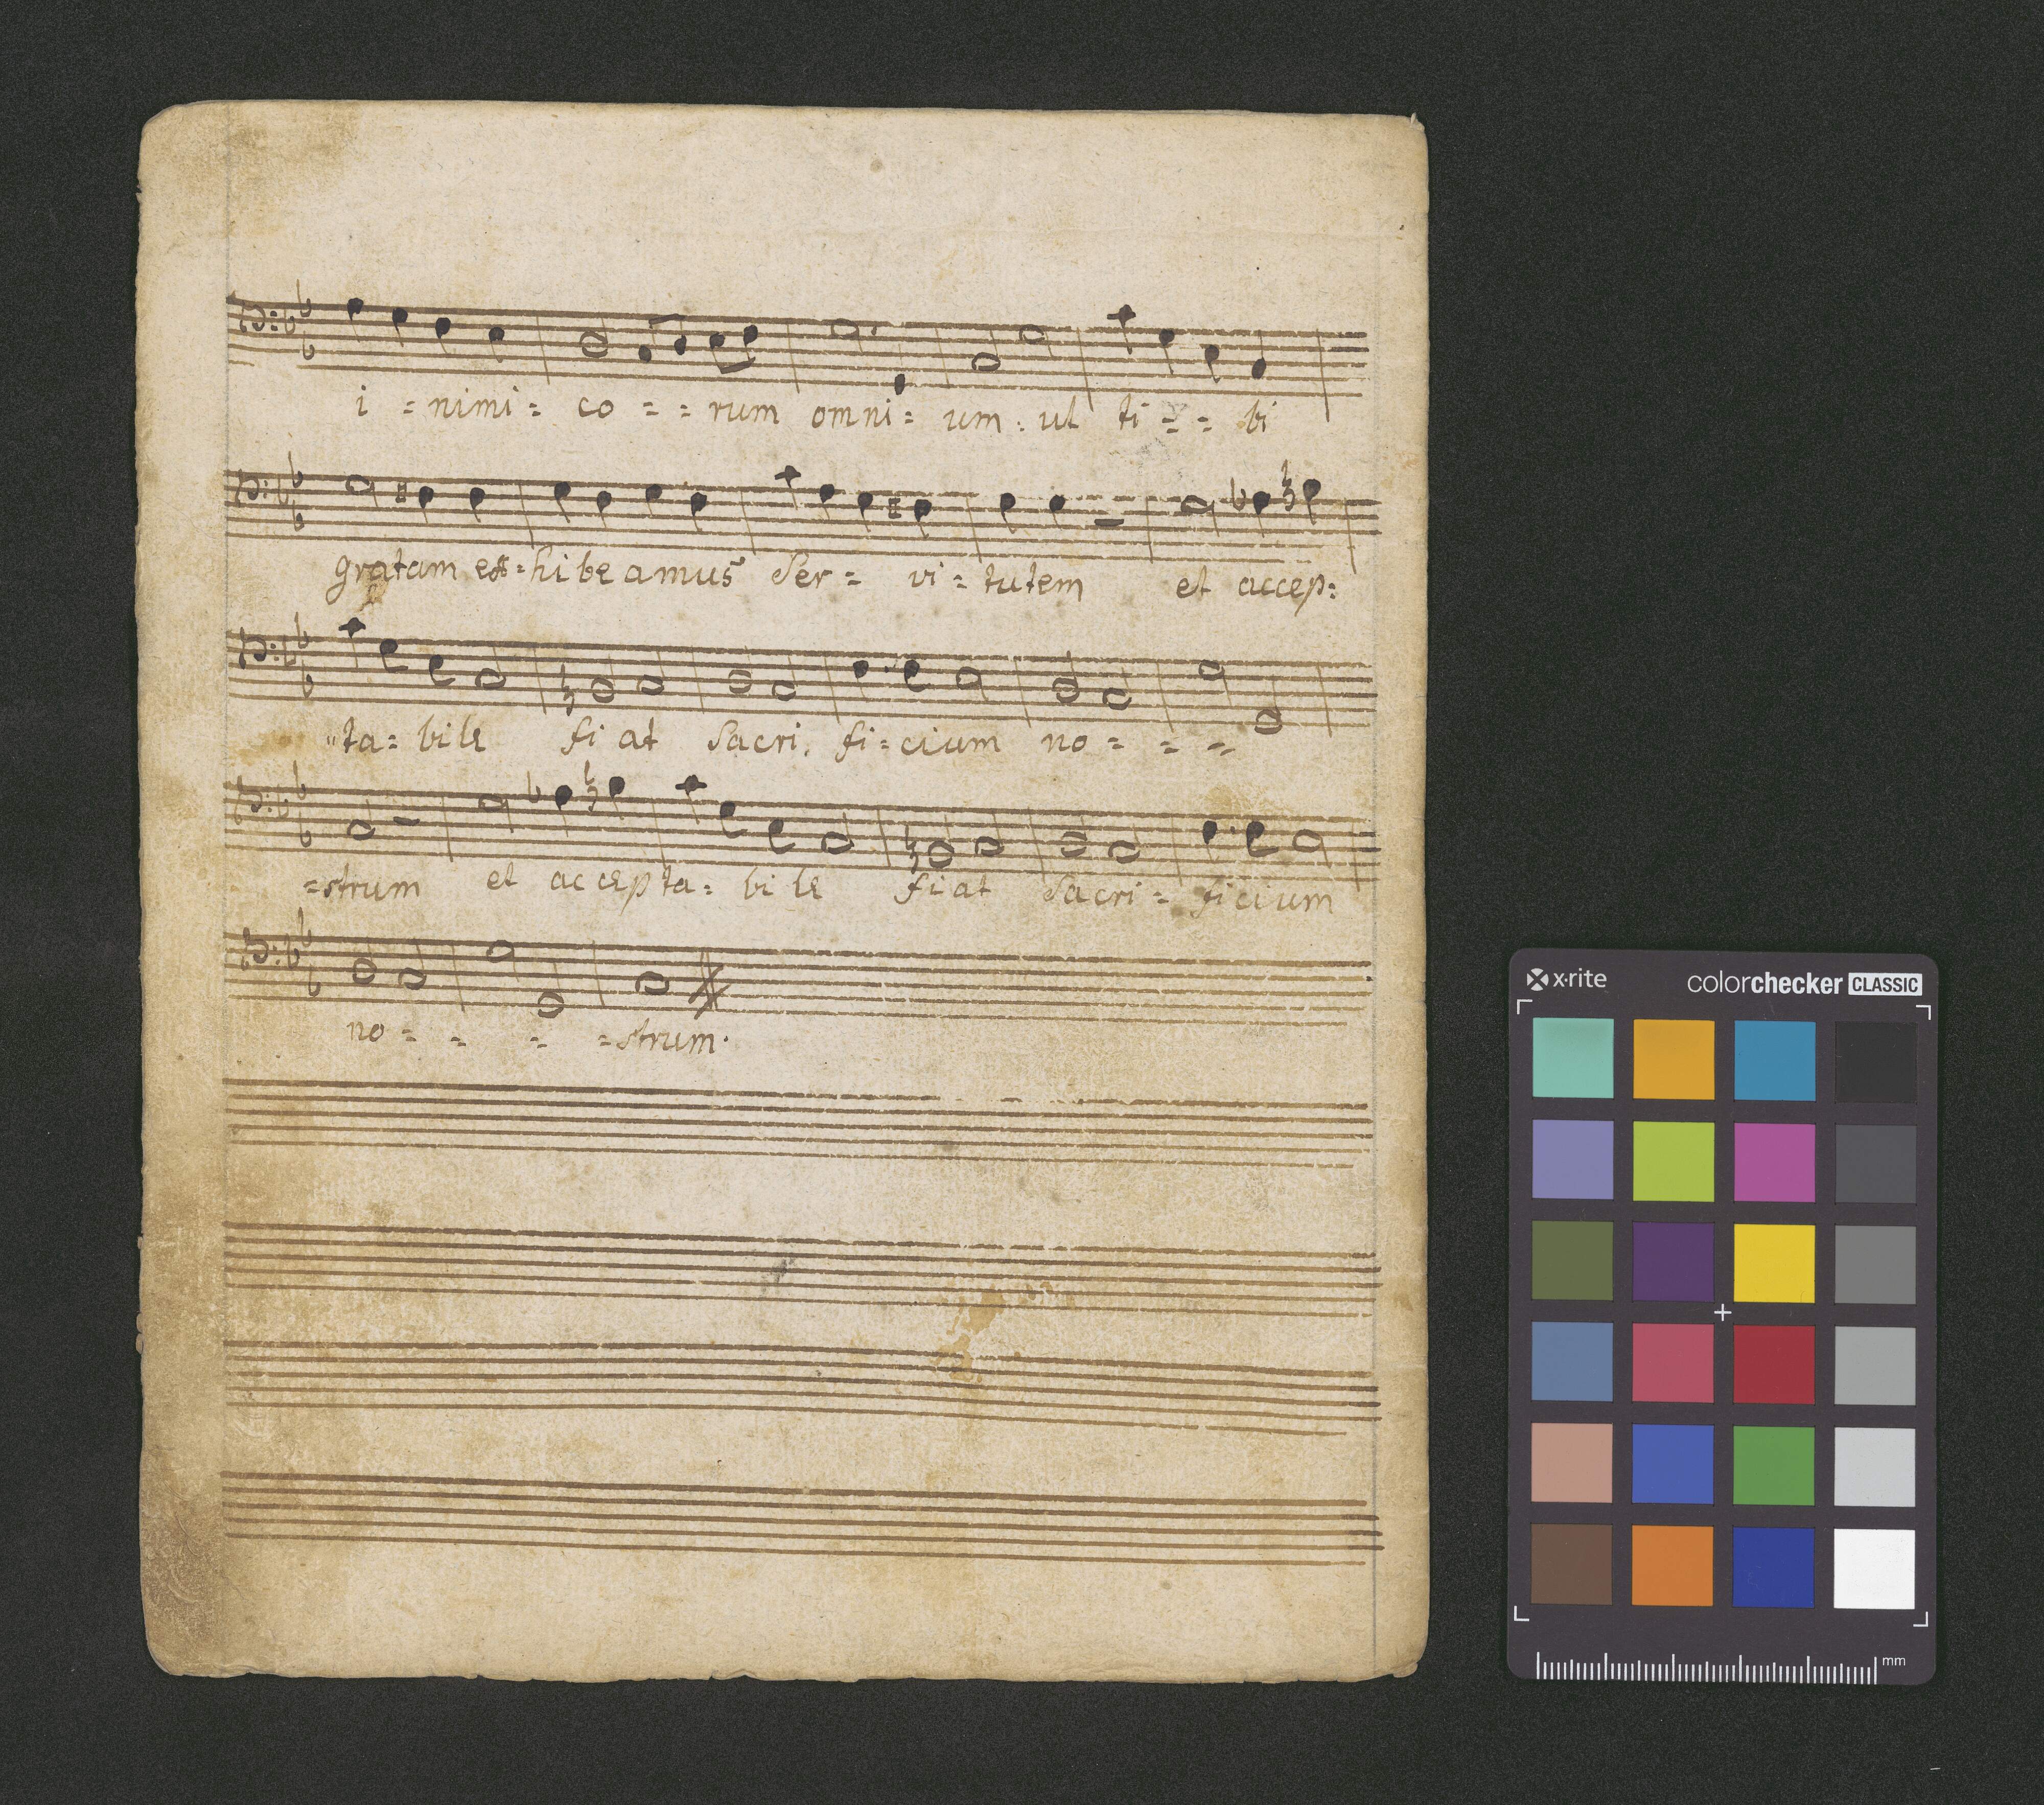 i = nimi = co = = rum omni = um : ul ti = = bi
gratam ex = hibe amus Ser = vi = tutem et accep:
"ta = bile fi at Sacri, fi = cium no = = =
= strum et accep ta = bi le fiat Sacri = ficium
no = = = = strum.
x·rite colorchecker CLASSIC
mm